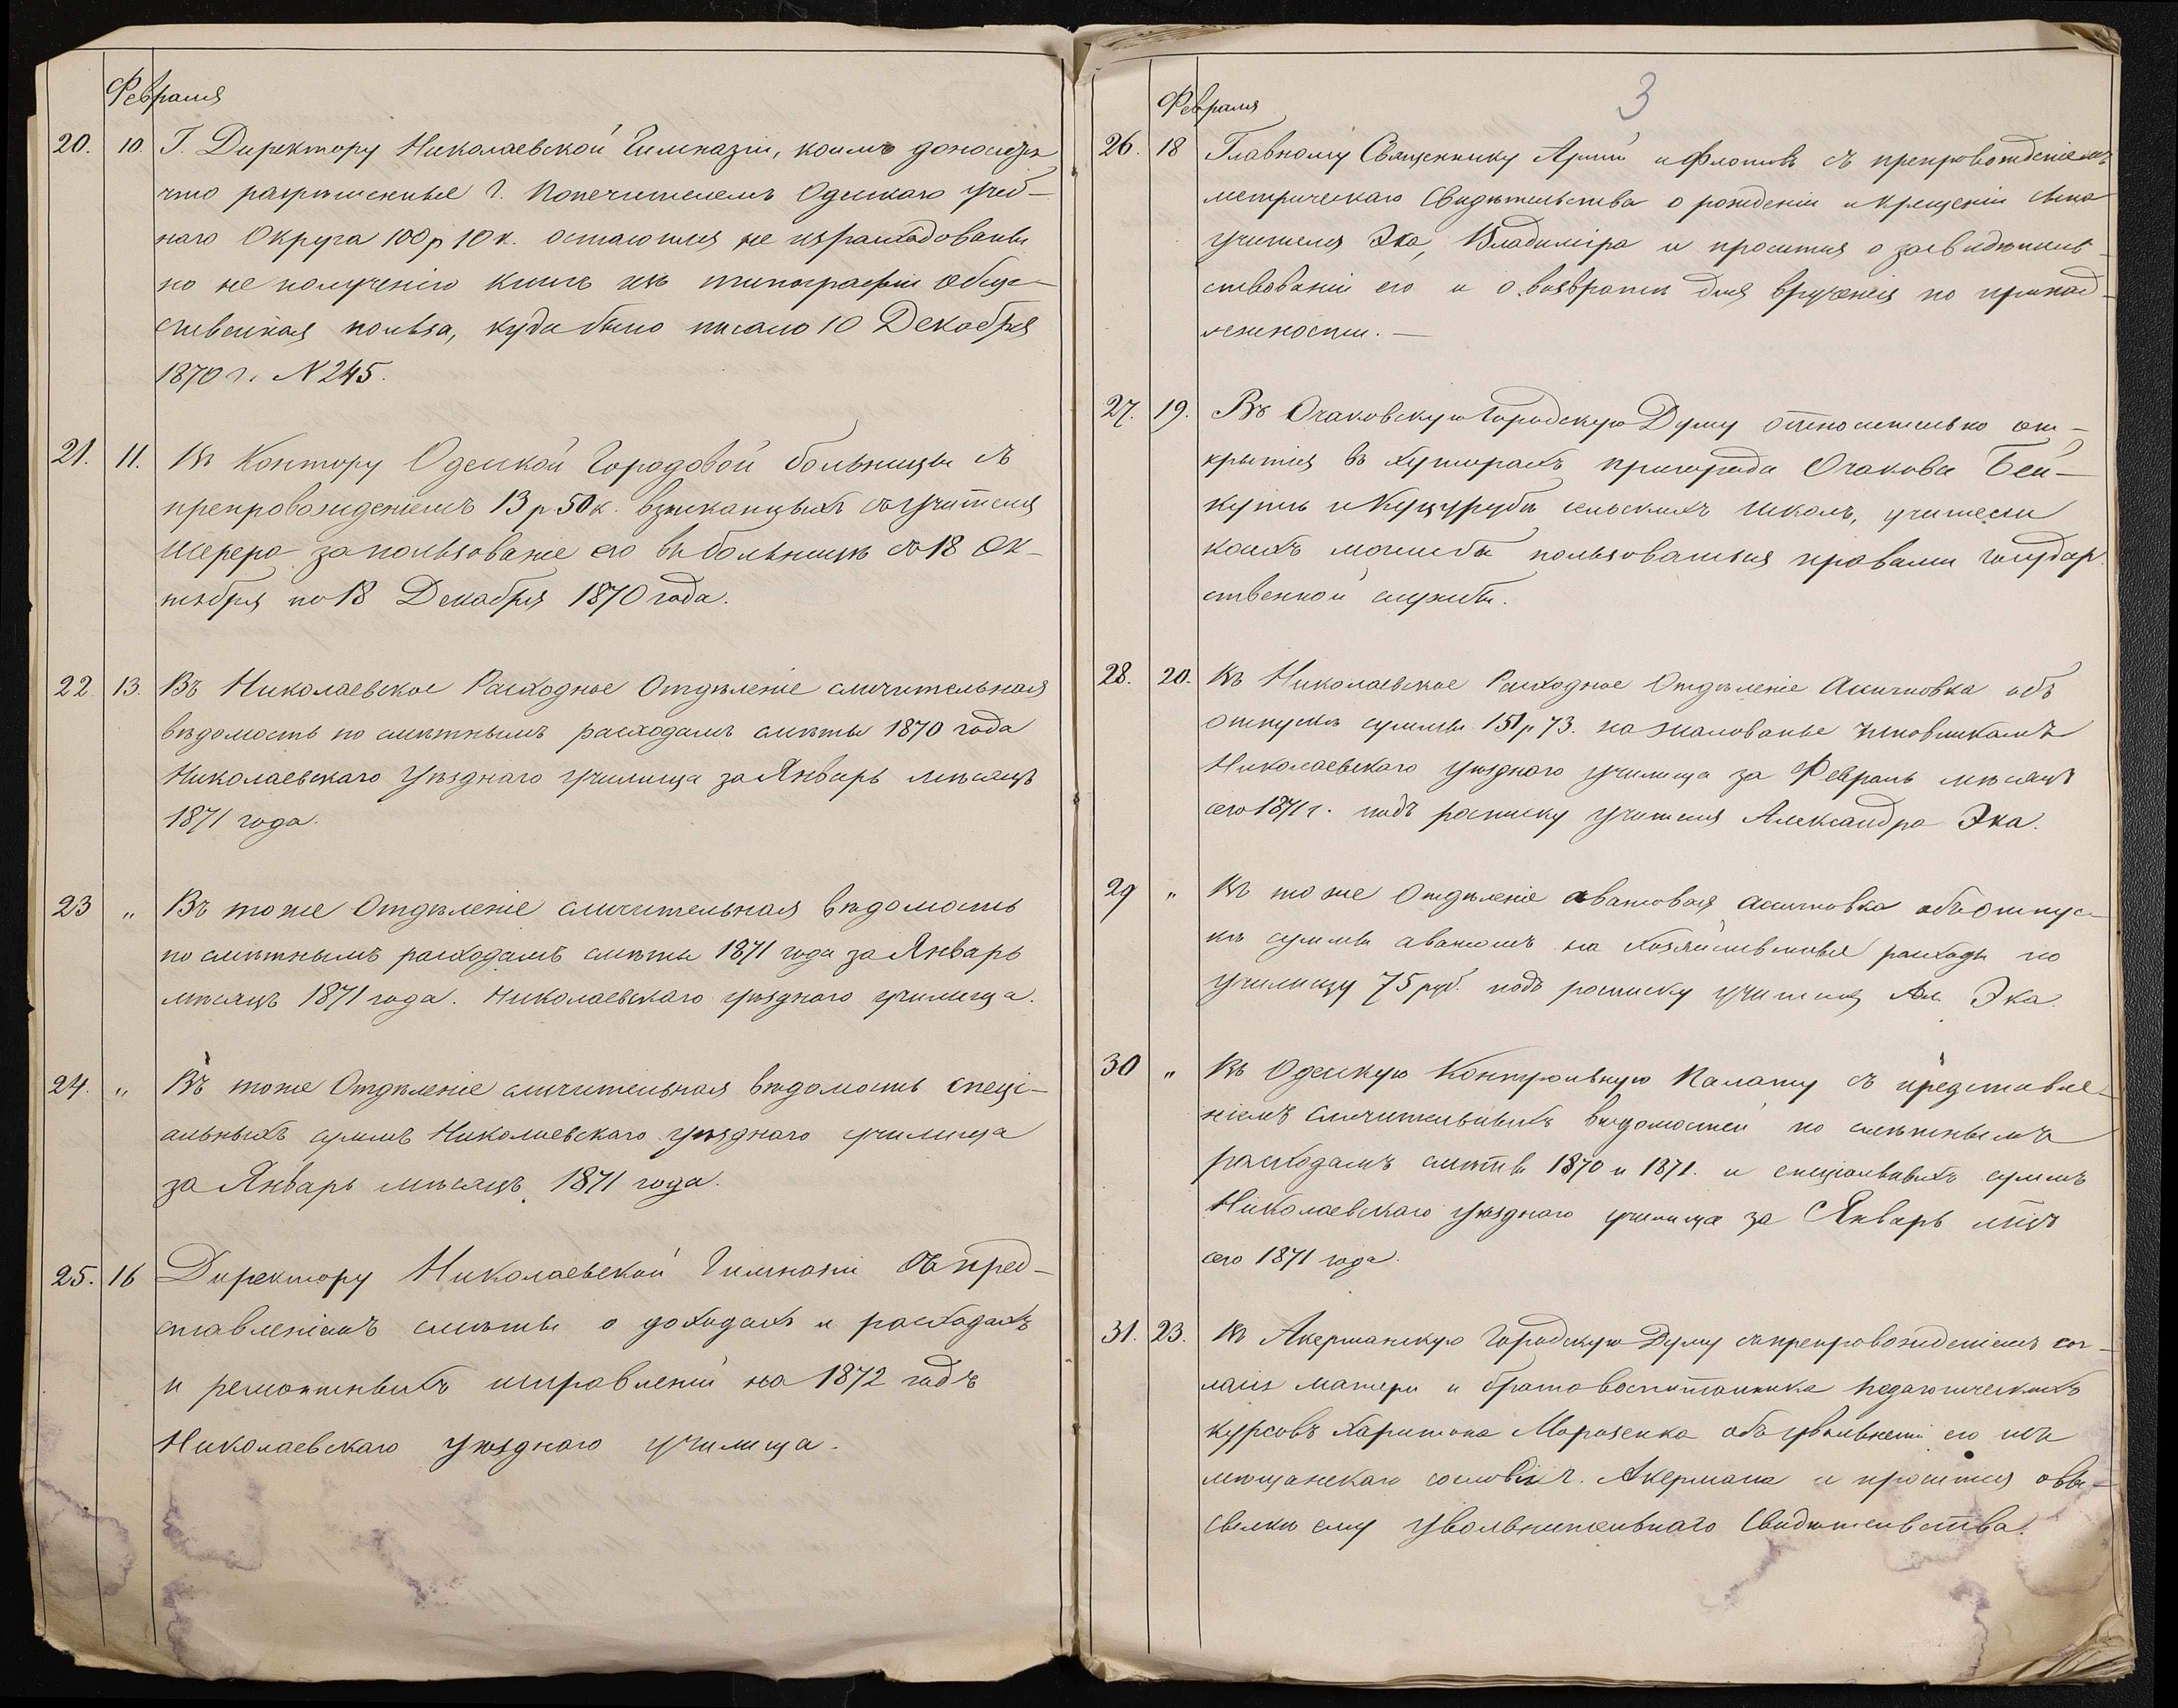 Февраля
20. 10. Г. Директору Николаевской Гимназіи, коимъ доносится
что разрѣшенные Г. Попечителемъ Одесскаго Учеб-
наго Округа 100 р 10 к. остаются не израсходованы
по не полученію книгъ изъ типографіи общe-
ственная польза, куда было писано 10 Декабря
1870 г. N 245.
21. 11. Въ Контору Одесской Городовой больницы съ
препровожденіемъ 13 р 50 к. взысканныхъ съ учителя
Шерера за пользованіе его въ больницѣ съ 18 Ок-
тября по 18 Декабря 1870 года.
22. 13. Въ Николаевское Расходное Отдѣленіе сличительная
вѣдомость по смѣтнымъ расходамъ смѣты 1870 года
Николаевскаго Уѣзднаго училища за Январь мѣсяцъ
1871 года.
23 „ Въ тоже Отдѣленіе сличительная вѣдомость
по смѣтнымъ расходамъ смѣты 1871 года за Январь
мѣсяцъ 1871 года. Николаевскаго уѣзднаго училища.
24. „ Въ тоже Отдѣленіе сличительная вѣдомость спеці-
альныхъ суммъ Николаевскаго уѣзднаго училища
за Январь мѣсяцъ 1871 года.
25. 16 Директору Николаевской Гимназіи съ пред-
ставленіемъ смѣты о доходахъ и расходахъ
и ремонтныхъ исправленій на 1872 годъ
Николаевскаго уѣзднаго училища.
3
Февраля
26. 18 Главному Священнику Арміи и Флотовъ съ препровожденіемъ
метрическаго Свидѣтельства о рожденіи и крещеніи сына
учителя Эка, Владиміра и просится о засвидѣтель-
ствованіи его и о возвратѣ для врученія по принад-
лежности. —
27. 19. Въ Очаковскую Городскую Думу относительно от-
крытія въ хуторахъ пригорода Очакова Бей-
кушъ и Куцурубы сельскихъ школъ, учители
коихъ могли бы пользоваться правами государ-
ственной службы.
28. 20. Въ Николаевское Расходное Отдѣленіе Ассигновка объ
отпускѣ суммы 151 р 73. на жалованье чиновникамъ
Николаевскаго уѣзднаго училища за Февраль мѣсяцъ
сего 1871 г. подъ росписку учителя Александра Эка.
29 „ Въ тоже Отдѣленіе авансовая ассигновка объ отпус-
кѣ суммы авансомъ на хозяйственные расходы по
училищу 75 руб. подъ росписку учителя Ал. Эка.
30 „ Въ Одесскую Контрольную Палату съ представле-
ніемъ сличительныхъ вѣдомостей по смѣтнымъ
расходамъ смѣты 1870 и 1871. и спеціальныхъ суммъ
Николаевскаго уѣзднаго училища за Январь мѣсъ
сего 1871 года.
31. 23. Въ Акерманскую Городскую Думу съ препровожденіемъ сог-
ласія матери и брата воспитанника педагогическихъ
курсовъ Харитона Морозенка объ увольненіи его изъ
мѣщанскаго сословія г. Акермана и просится о вы-
сылкѣ ему увольнительнаго Свидѣтельства.